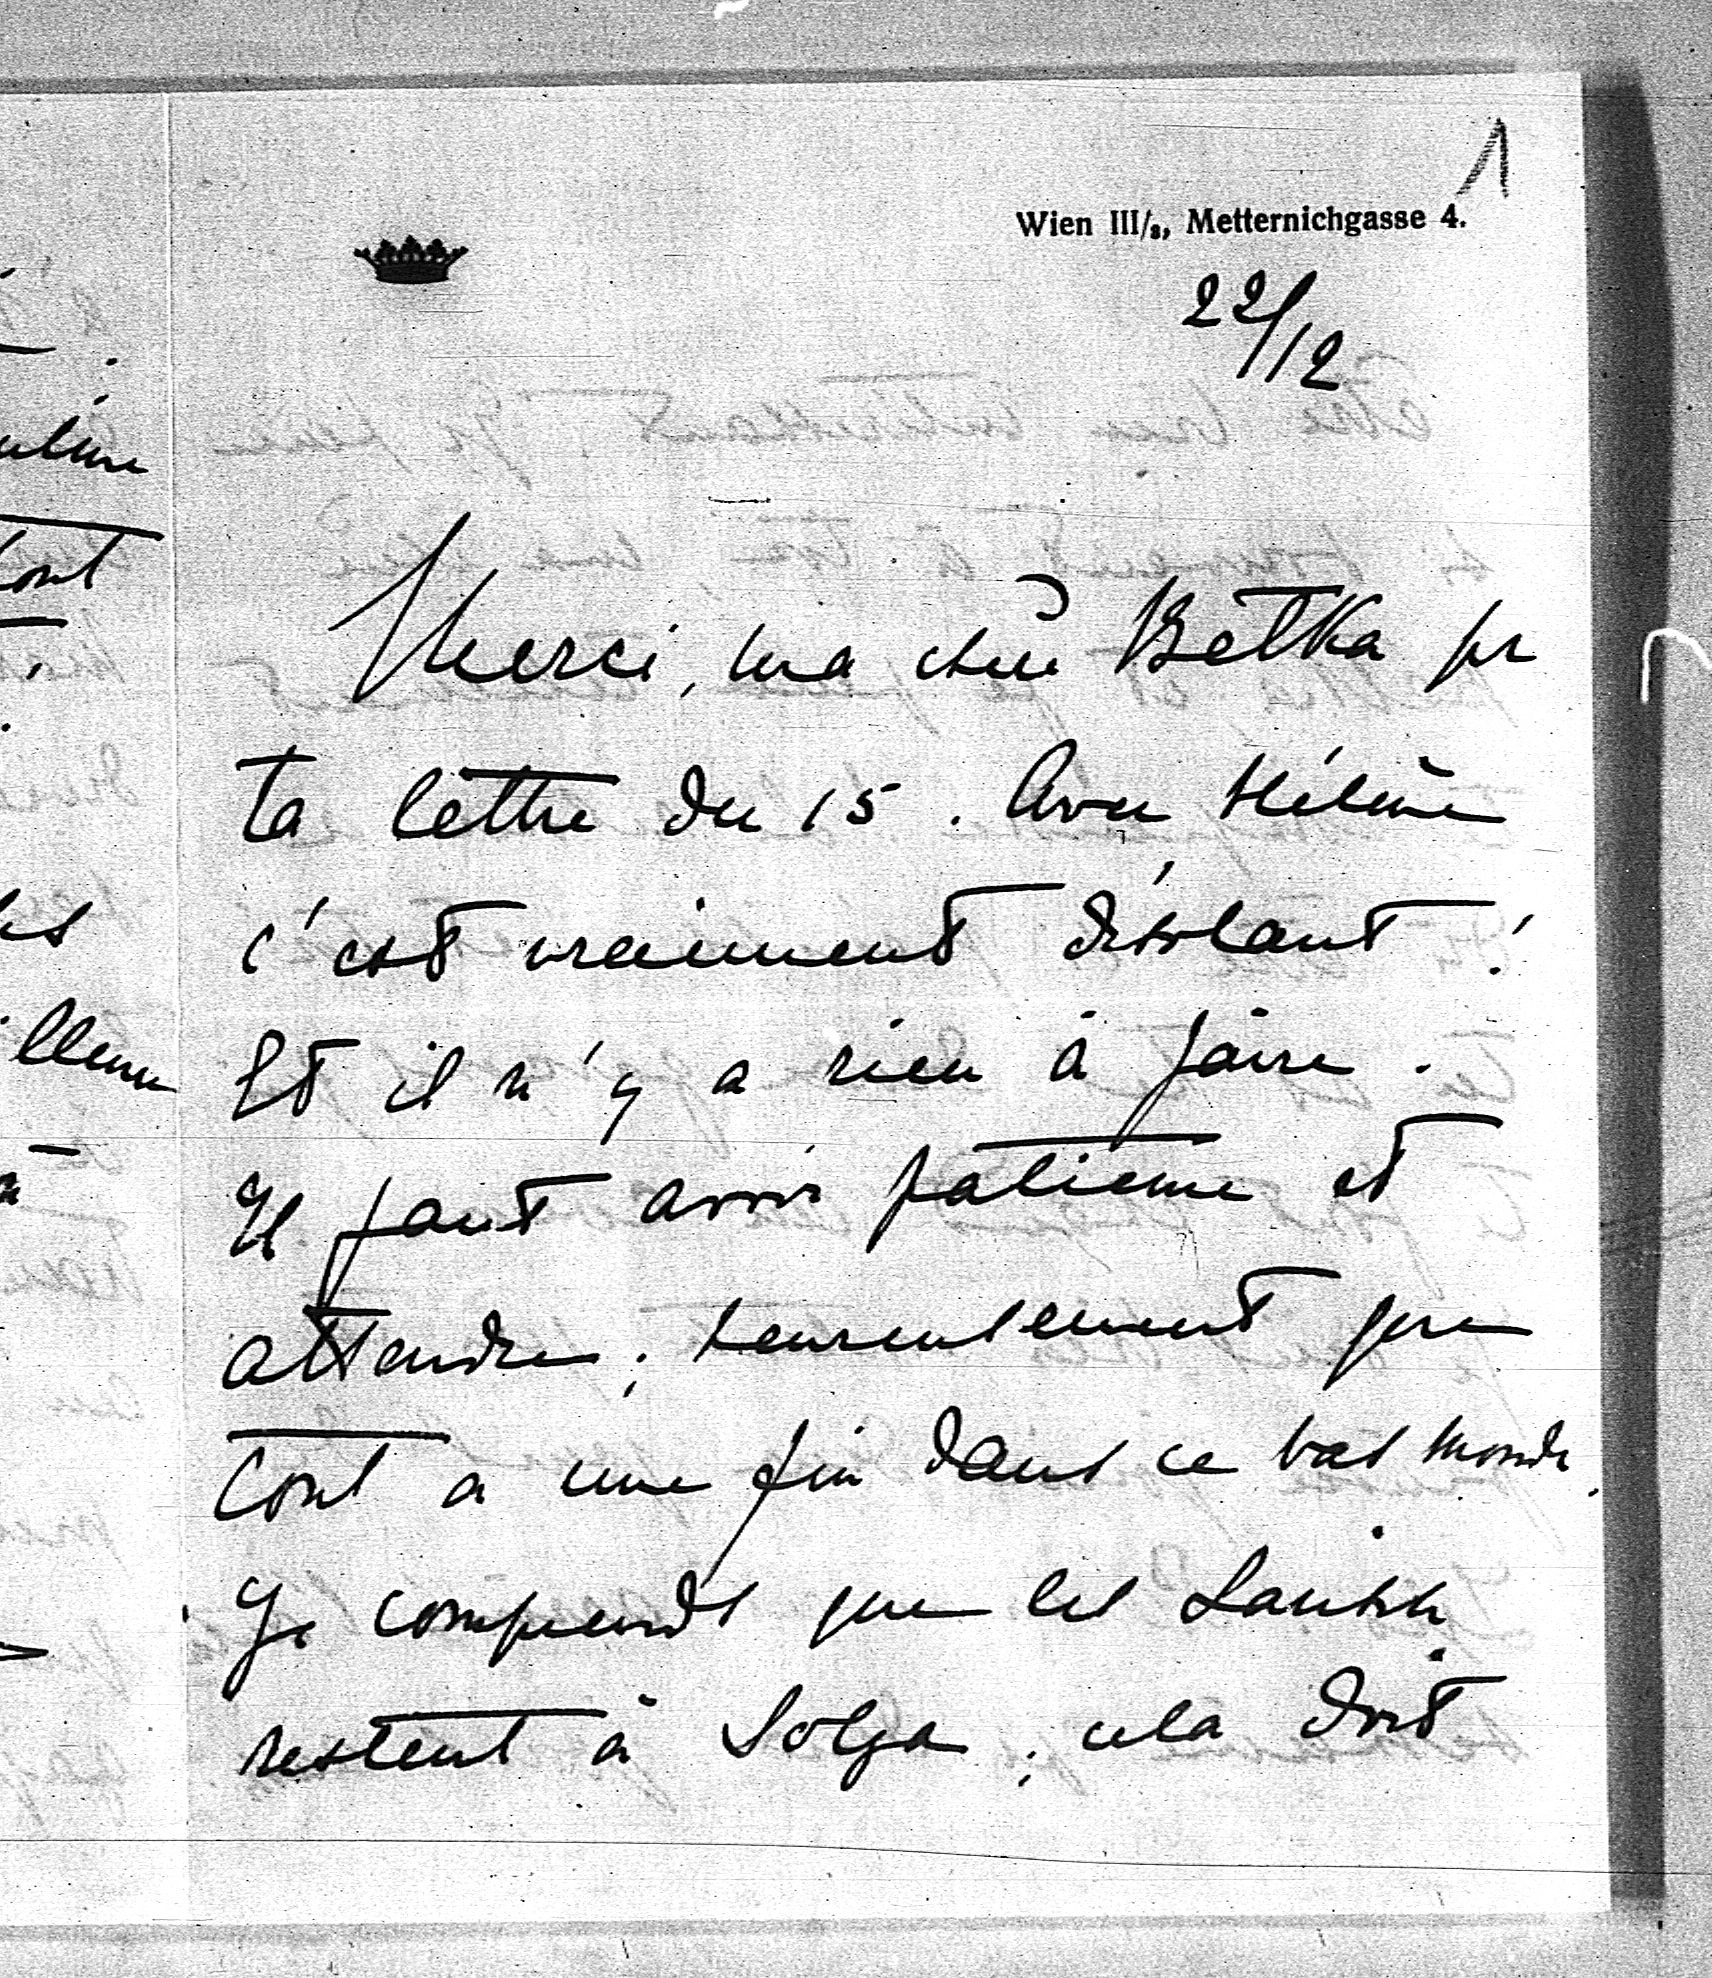 1
Wien III/3, Metternichgasse 4.
22/12
Merci, ma chère Betka pr
ta lettre du 15. Avec Hélène
c'est vraiment désolant!
Et il n'y a rien à faire.
Il faut avoir patience et
attendre; heureusement que
tout a une fin dans ce bas monde.
Je comprends que les
restent à Solga; cela doit